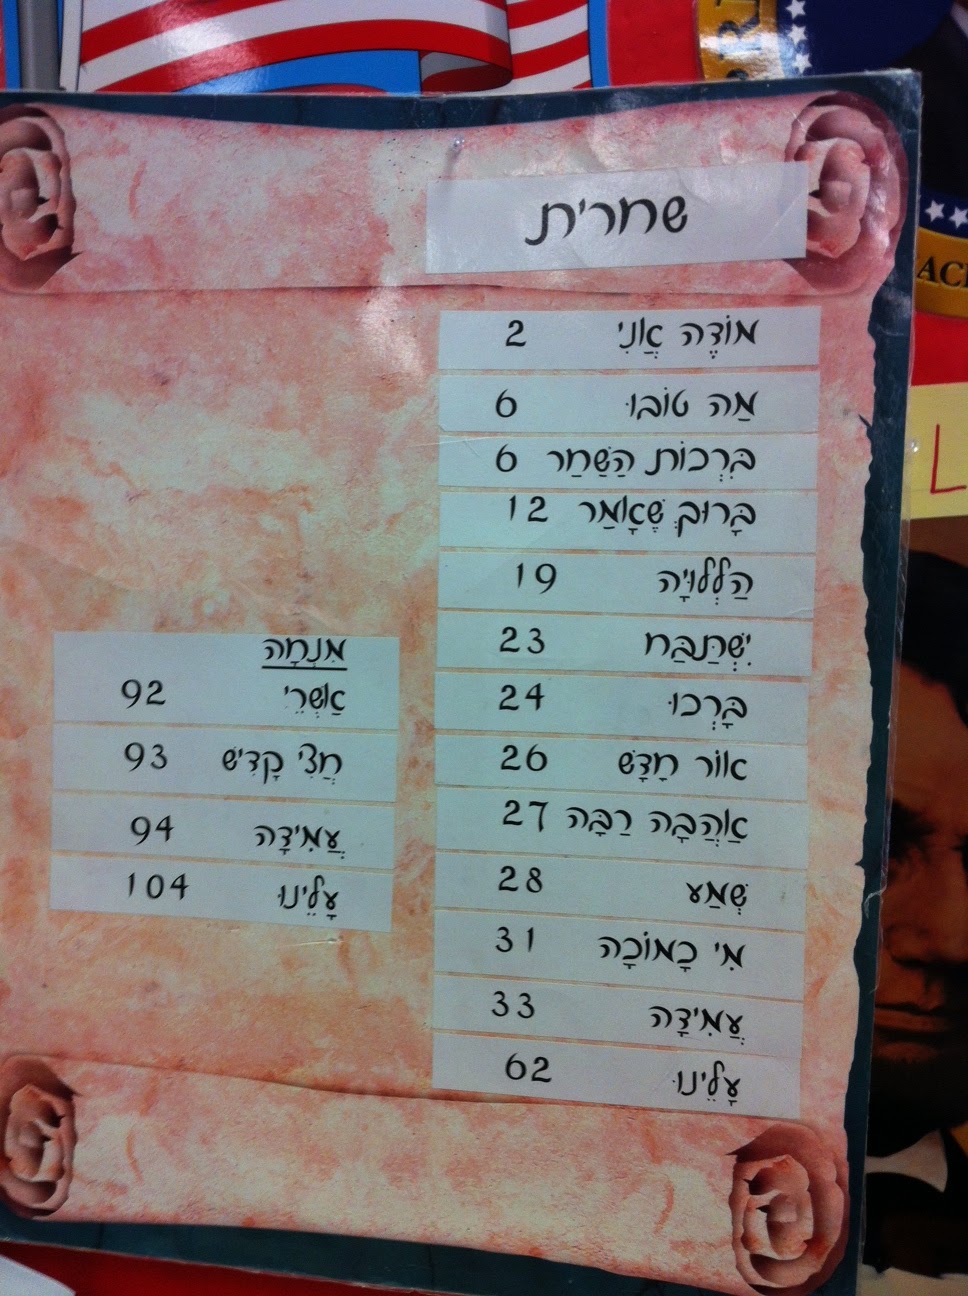 שחרית
מוֹדֶה אֲנִי 2
מַה טוֹבוּ 6
בִּרְכוֹת הַשַּׁחַר 6
בָּרוּךְ שֶׁאָמַר 12
הַלְלוּיָה 19
יִשְׁתַּבַּח 23
בָּרְכוּ 24
אוֹר חָדָשׁ 26
אַהֲבָה רַבָּה 27
שְׁמַע 28
מִי כָמוֹכָה 31
עֲמִידָה 33
עָלֵינוּ 62
מִנְחָה
אַשְׁרֵי 92
חֲצִי קָדִישׁ 93
עֲמִידָה 94
עָלֵינוּ 104
L